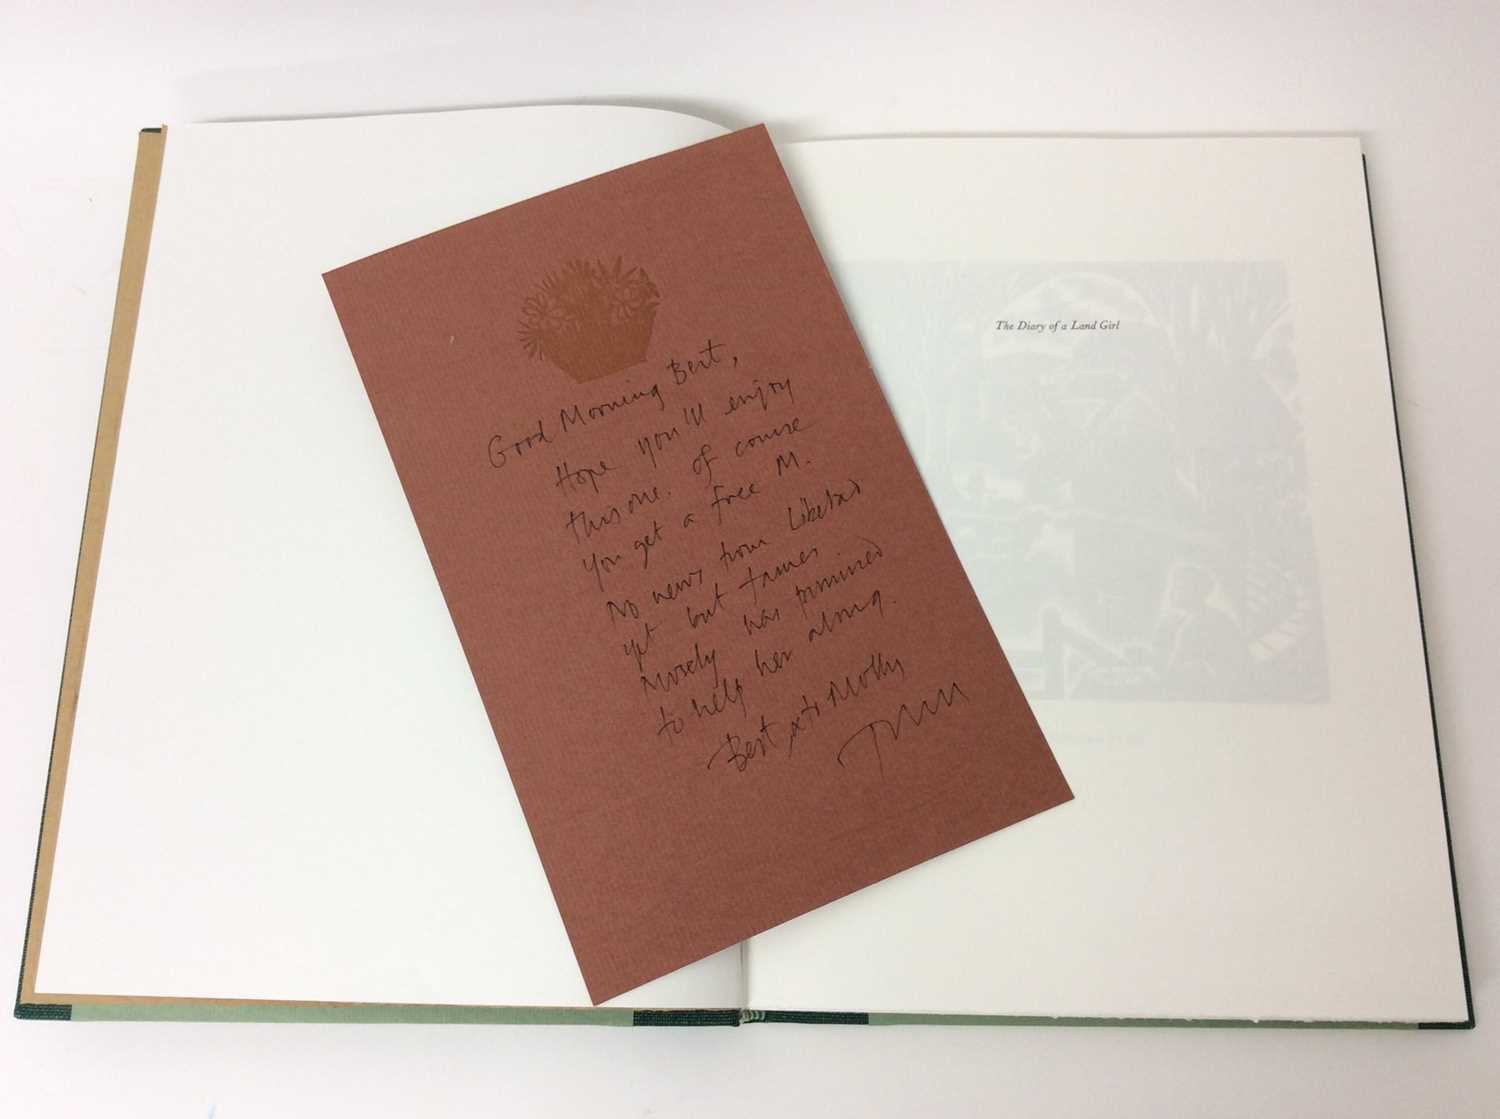 Good Morning Bert,
Hope you'll enjoy
this one. Of course
you get a free M.
No news from Libertad
yet but James
Mosely has promised
to help her along.
Best x to Molly
The Diary of a Land Girl